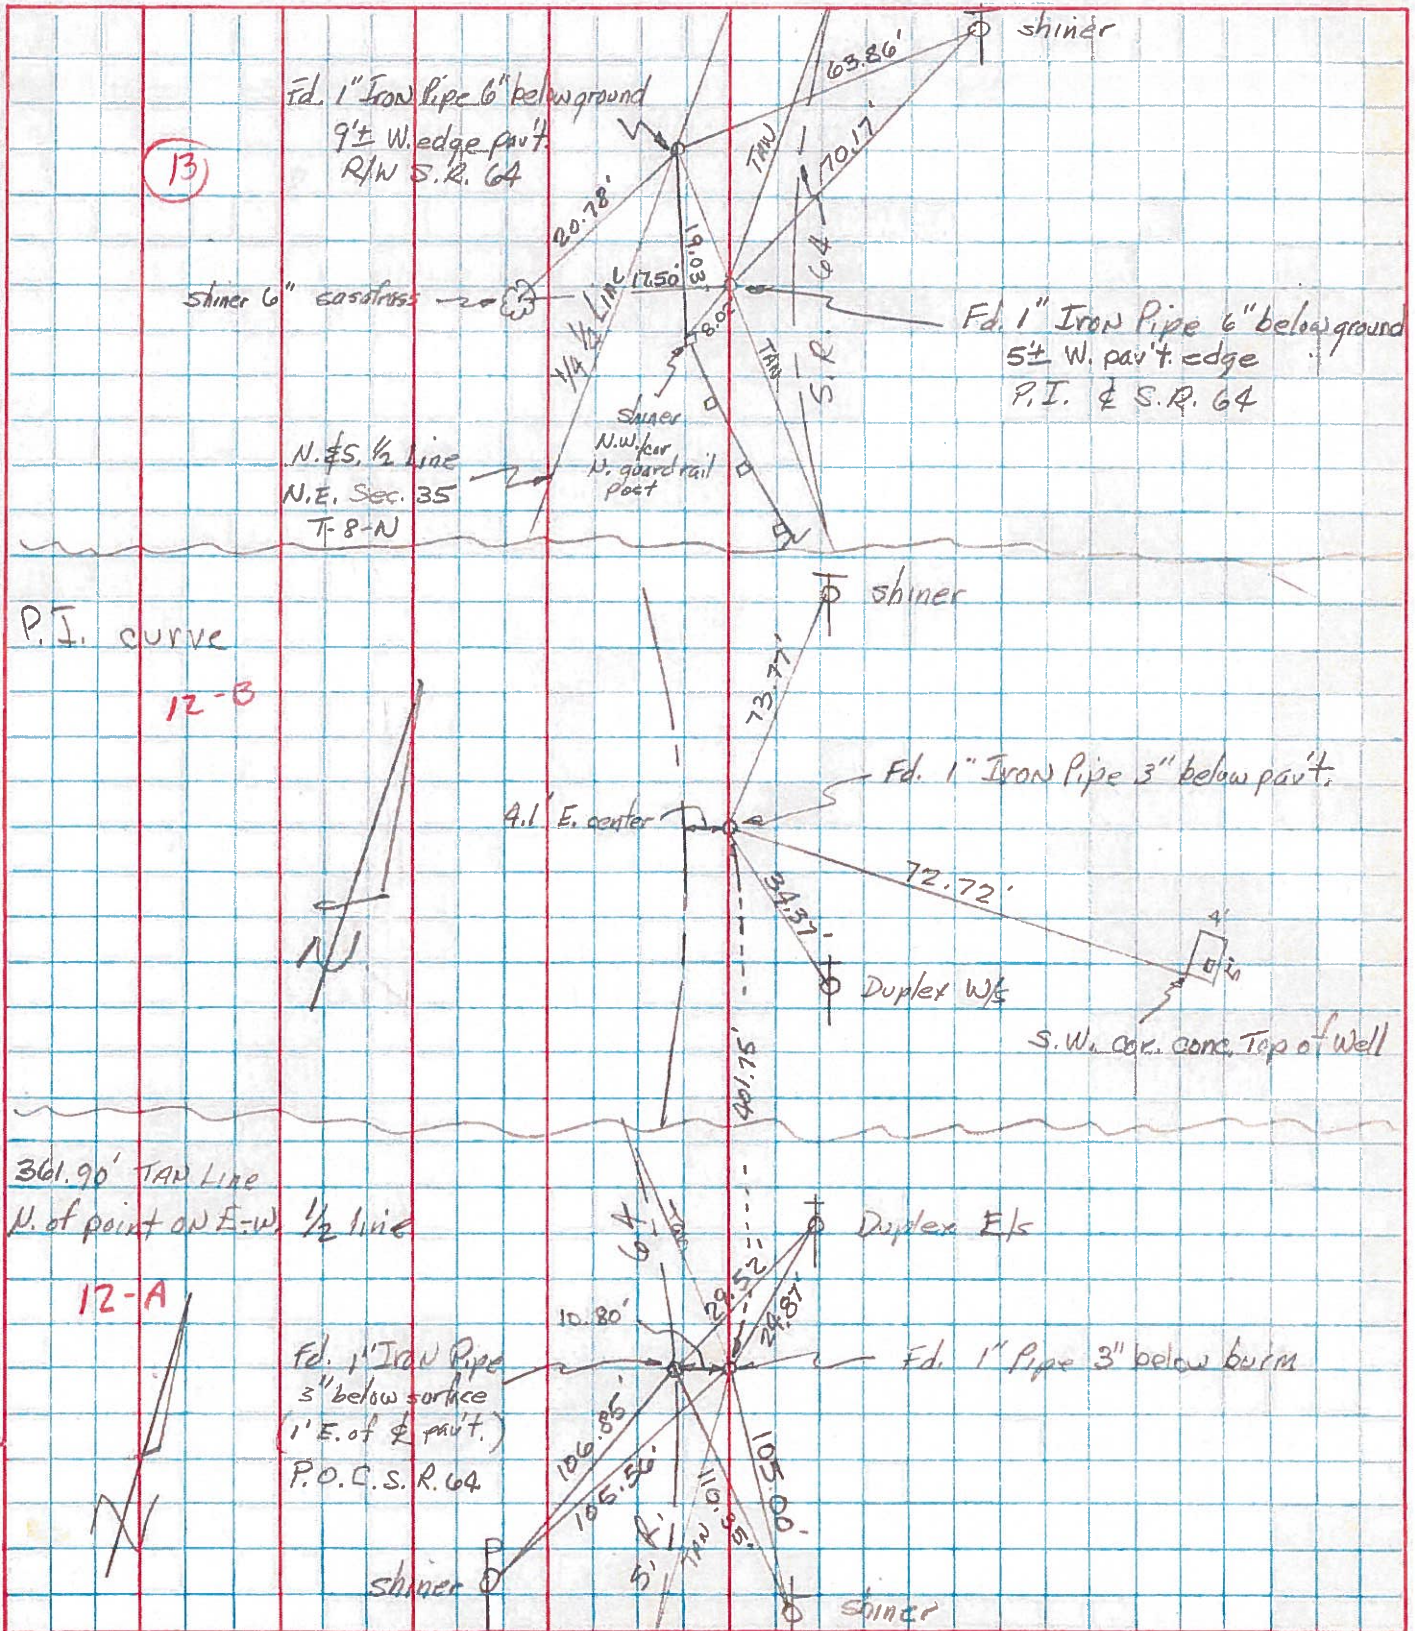 shiner
63.86'
Fd. 1" Iron Pipe 6" below ground
9'± W. edge pav't.
R/W S.R. 64
13
TAN
70.17'
20.78'
19.03'
S.R. 64
shiner 6" sasafrass
17.50'
8.02'
1/4 1/4 LINE
TAN
Fd. 1" Iron Pipe 6" below ground
5'± W. pav't. edge
P.I. ℄ S.R. 64
shiner
N.W./cor
N. guard rail
post
N. & S. 1/2 Line
N.E. Sec. 35
T-8-N
P.I. curve
12-B
shiner
73.77'
Fd. 1" Iron Pipe 3" below pav't.
4.1' E. center
72.72'
34.37'
N.
4'
Duplex W/s
S.W. cor. conc. Top of Well
401.75'
361.90' TAN Line
N. of point ON E-W 1/2 line
12-A
64
TAN
Duplex E/s
29.52'
24.87'
10.80'
Fd. 1" Iron Pipe
3" below surface
(1' E. of ℄ pav't.)
P.O.C. S.R. 64
Fd. 1" Pipe 3" below burm
106.85'
105.56'
110.35'
105.00'
N
S. R.
TAN
shiner
shiner